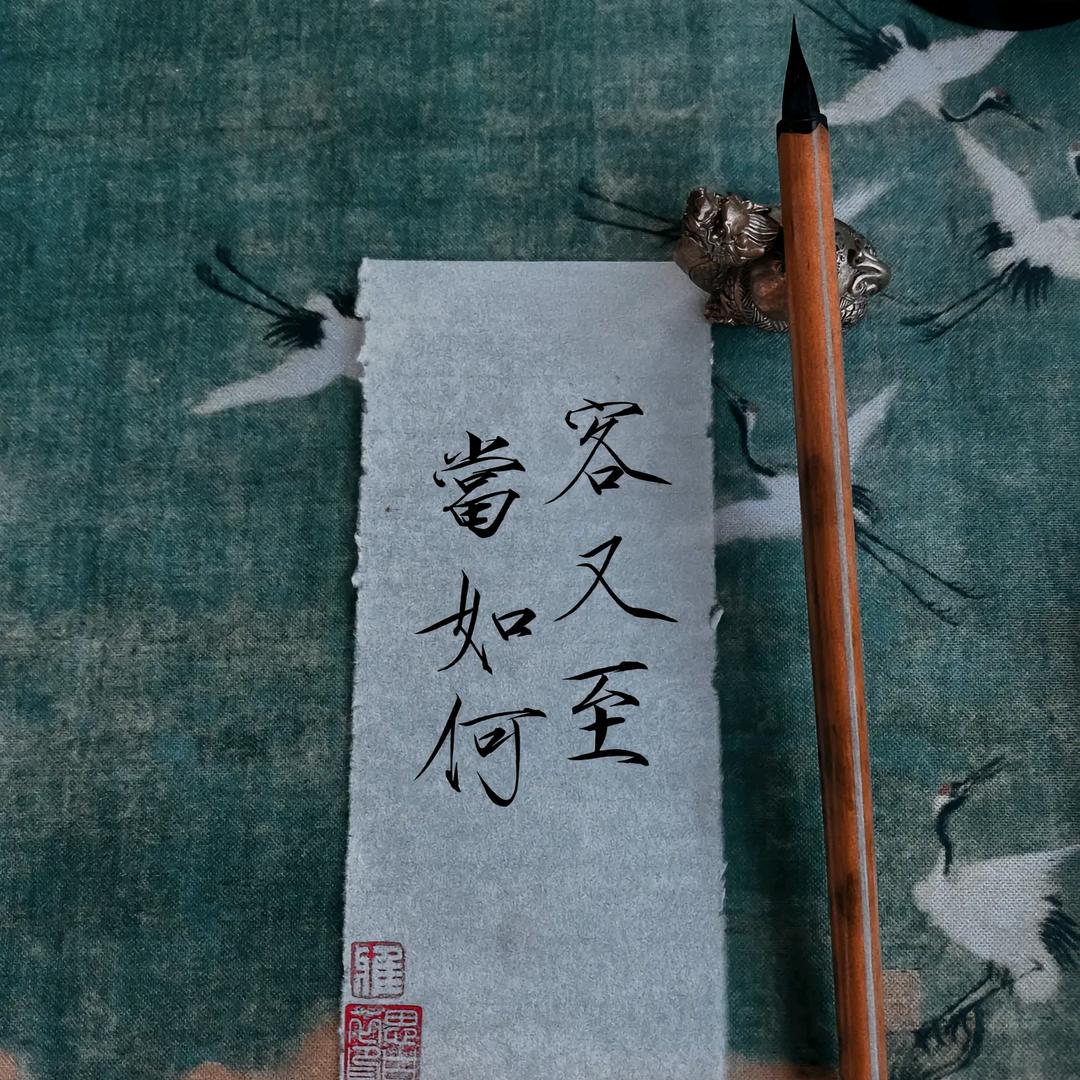 客又至
當如何